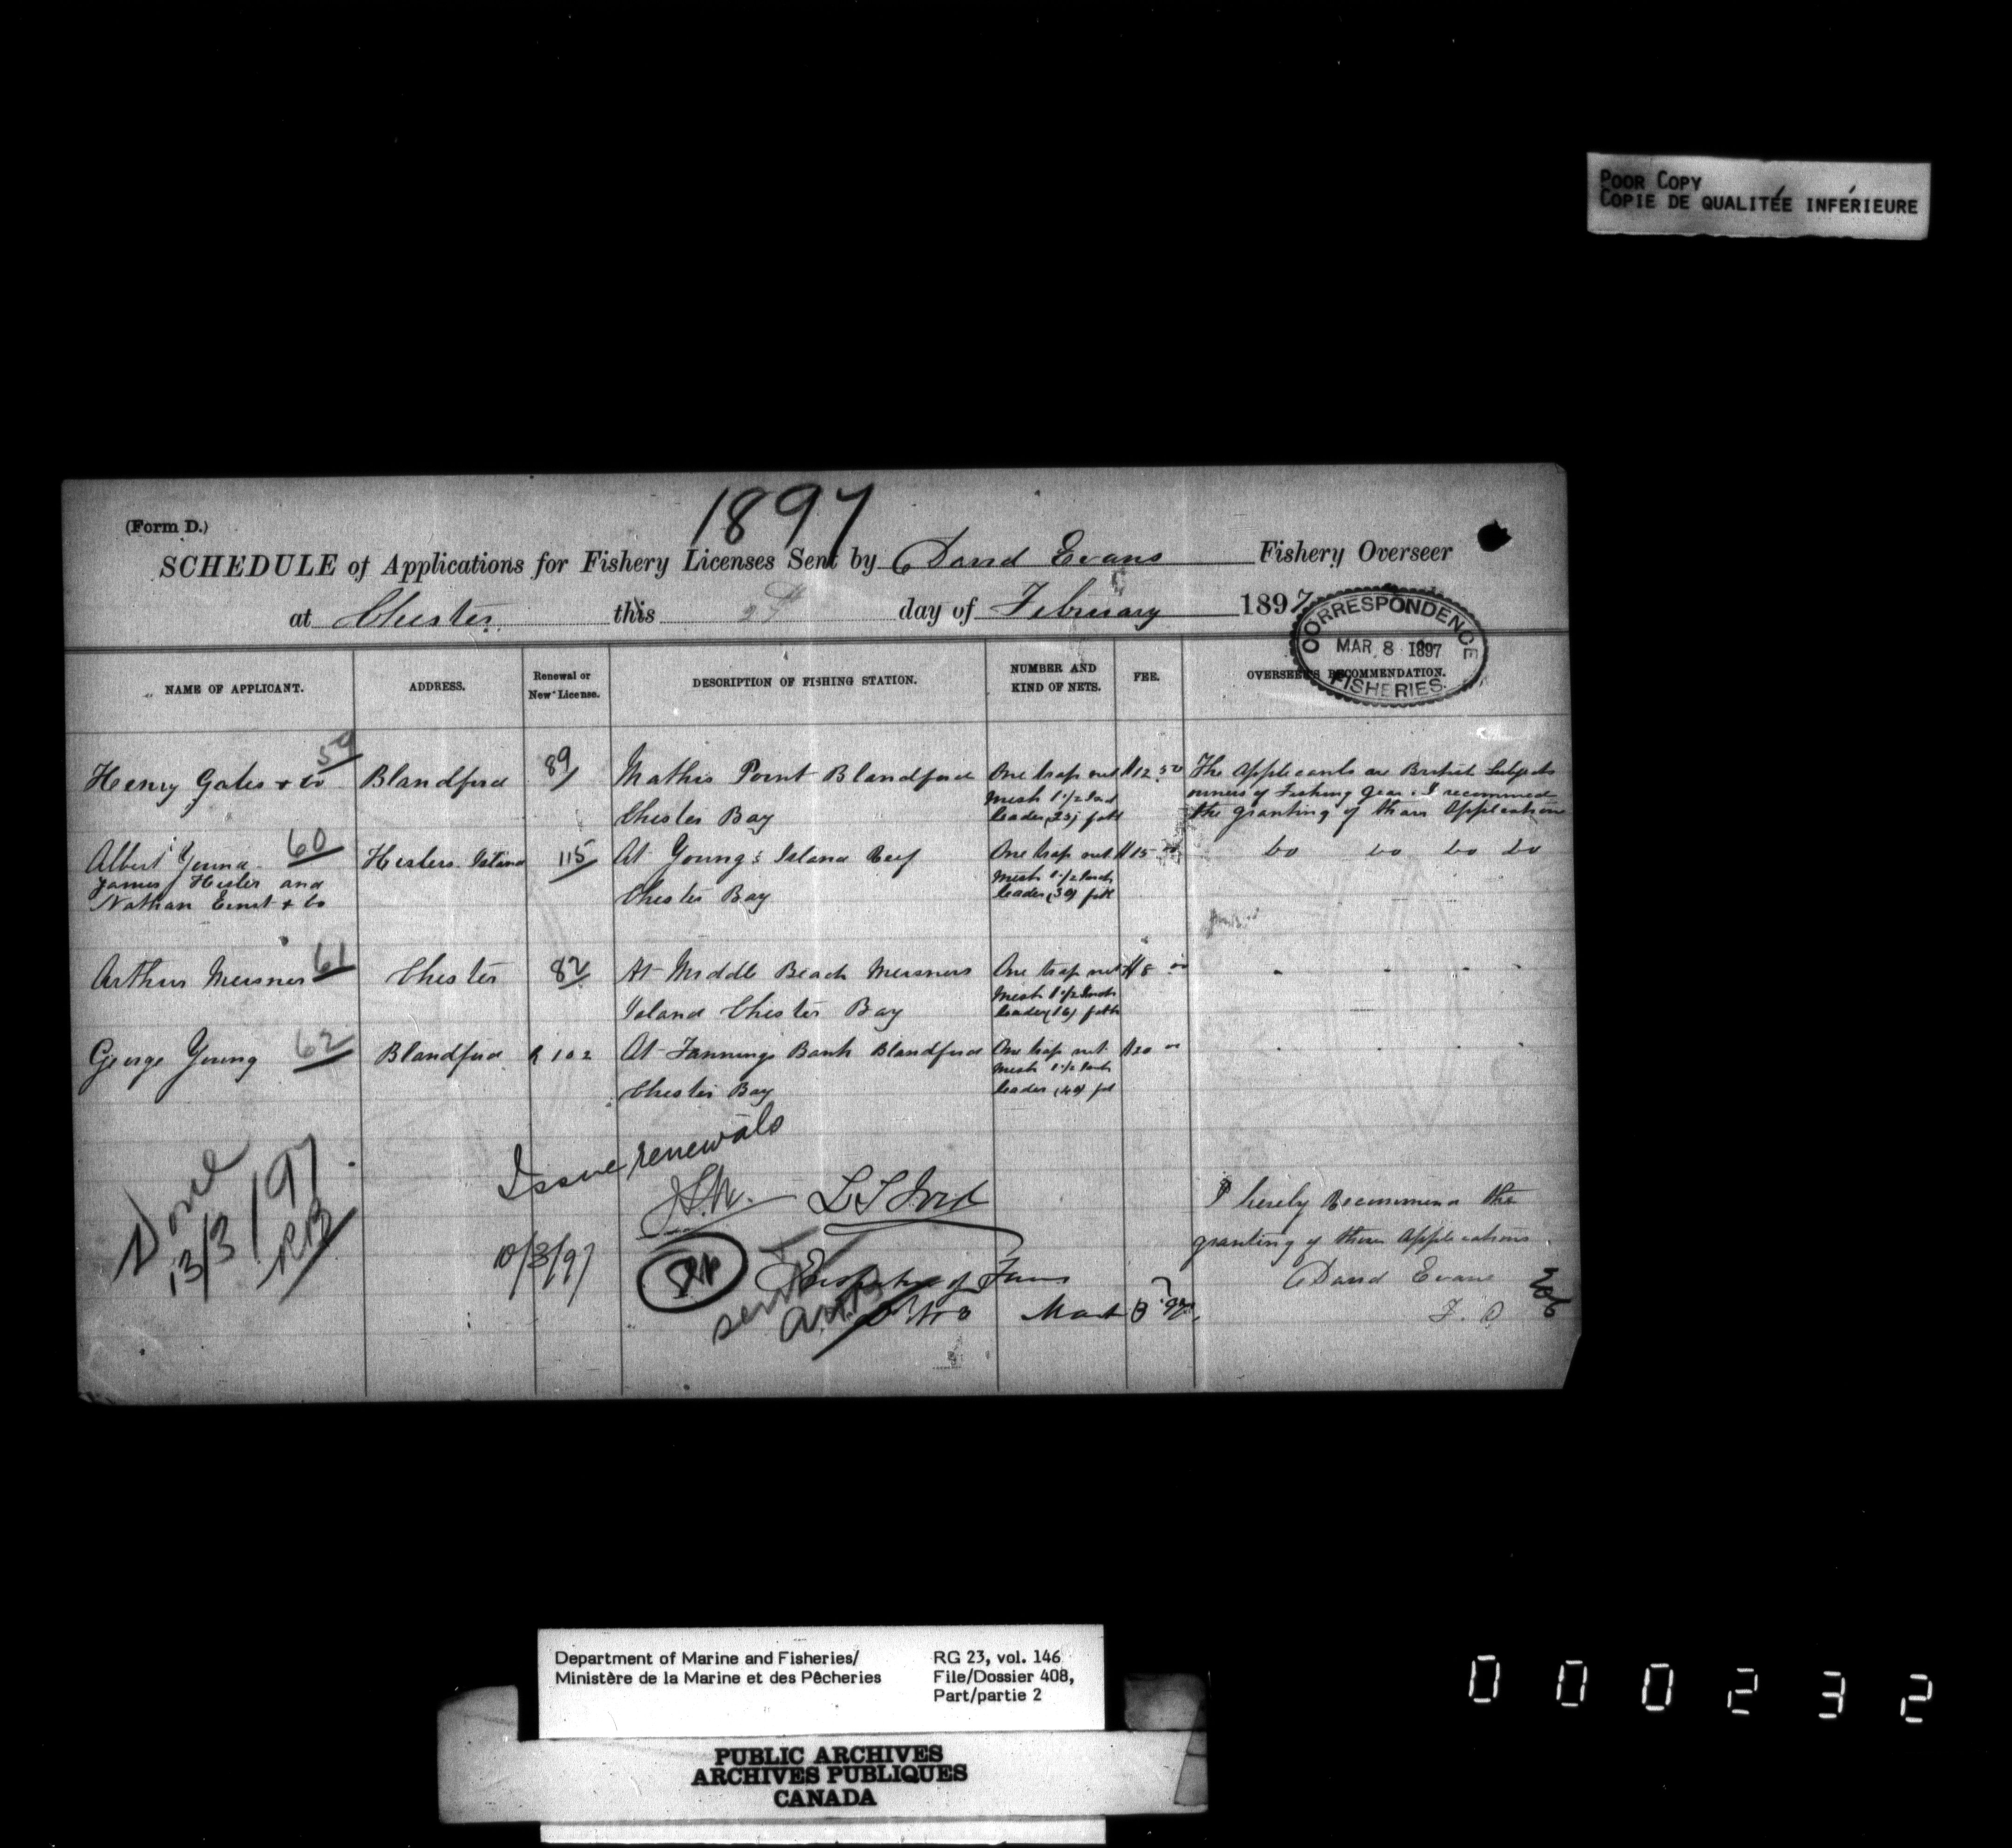 POOR COPY
COPIE DE QUALITÉE INFÉRIEURE
1897
(Form D.)
SCHEDULE of Applications for Fishery Licenses Sent by David Evans Fishery Overseer
at Chester this day of February 1897
CORRESPONDENCE
MAR 8 1897
FISHERIES.
NAME OF APPLICANT.
ADDRESS.
Renewal or
New License.
DESCRIPTION OF FISHING STATION.
NUMBER AND
KIND OF NETS.
FEE.
OVERSEER'S RECOMMENDATION.
59
Henry Gates & Co Blandford 89 Mathis Point Blandford One trap net $12.50 The Applicants are British Subjects
Mesh 1 1/2 Inch owners of Fishing Gear. I recommend
Chester Bay leader (25) fath the granting of thare Application
Albert Young 60 Heslers Island 115 At Young's Island Reef One trap net $15 Do Do Do Do
James Hesler and Mesh 1 1/2 Inch
Nathan Ernst & Co Chester Bay leader (30) fath
Arthur Meisner 61 Chester 82 At Middle Beach Meisners One trap net $8 00
Mesh 1 1/2 Inch
Island Chester Bay leader (16) fath
George Young 62 Blandford R 102 At Fannings Bank Blandford One trap net $20 00
Mesh 1 1/2 Inch
Chester Bay leader (40) fat
Issue renewals
Done
13/3/97
RB
10/3/97
I hereby Recommend the
granting of these Applications
David Evans
F. O
Inspector of
sent
March 3 97
Department of Marine and Fisheries/
Ministère de la Marine et des Pêcheries
RG 23, vol. 146
File/Dossier 408,
Part/partie 2
PUBLIC ARCHIVES
ARCHIVES PUBLIQUES
CANADA
000232